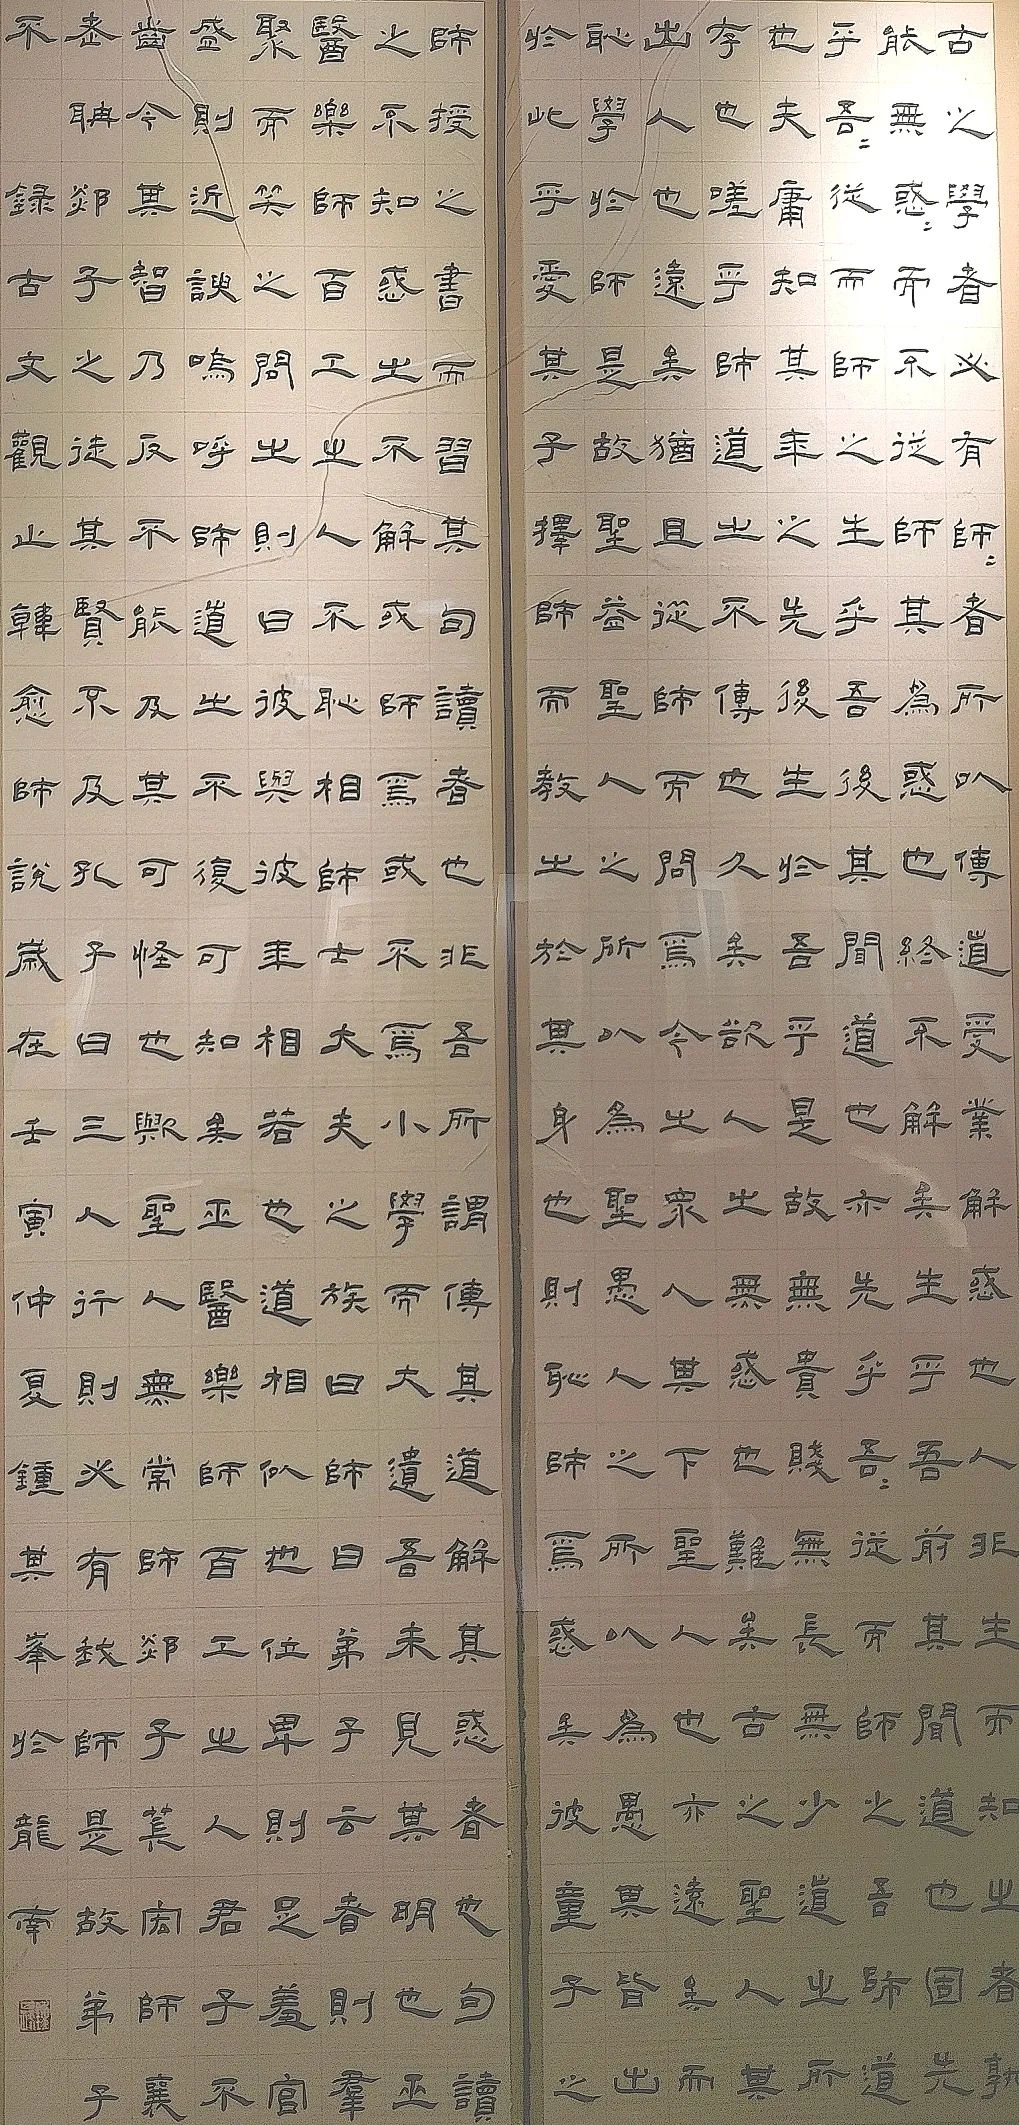 古之學者必有師〻者所以傳道受業解惑也人非生而知之者孰
能無惑〻而不從師其為惑也終不解矣生乎吾前其聞道也固先
乎吾〻從而師之生乎吾後其聞道也亦先乎吾〻從而師之吾師道
也夫庸知其年之先後生於吾乎是故無貴賤無長無少道之所
存也嗟乎師道之不傳也久矣欲人之無惑也難矣古之聖人其
出人也遠矣猶且從師而問焉今之眾人其下聖人也亦遠矣而
恥學於師是故聖益聖人之所以為聖愚人之所以為愚其皆出
於此乎愛其子擇師而教之於其身也則恥師焉惑矣彼童子之
師授之書而習其句讀者也非吾所謂傳其道解其惑者也句讀
之不知惑之不解或師焉或不焉小學而大遺吾未見其明也巫
醫樂師百工之人不恥相師士大夫之族曰師曰弟子云者則羣
聚而笑之問之則曰彼與彼年相若也道相似也位卑則足羞官
盛則近諛嗚呼師道之不復可知矣巫醫樂師百工之人君子不
齒今其智乃反不能及其可怪也歟聖人無常師郯子萇宏師襄
老聃郯子之徒其賢不及孔子曰三人行則必有我師是故弟子
不 錄古文觀止韓愈師說歲在壬寅仲夏鍾其峯於龍南